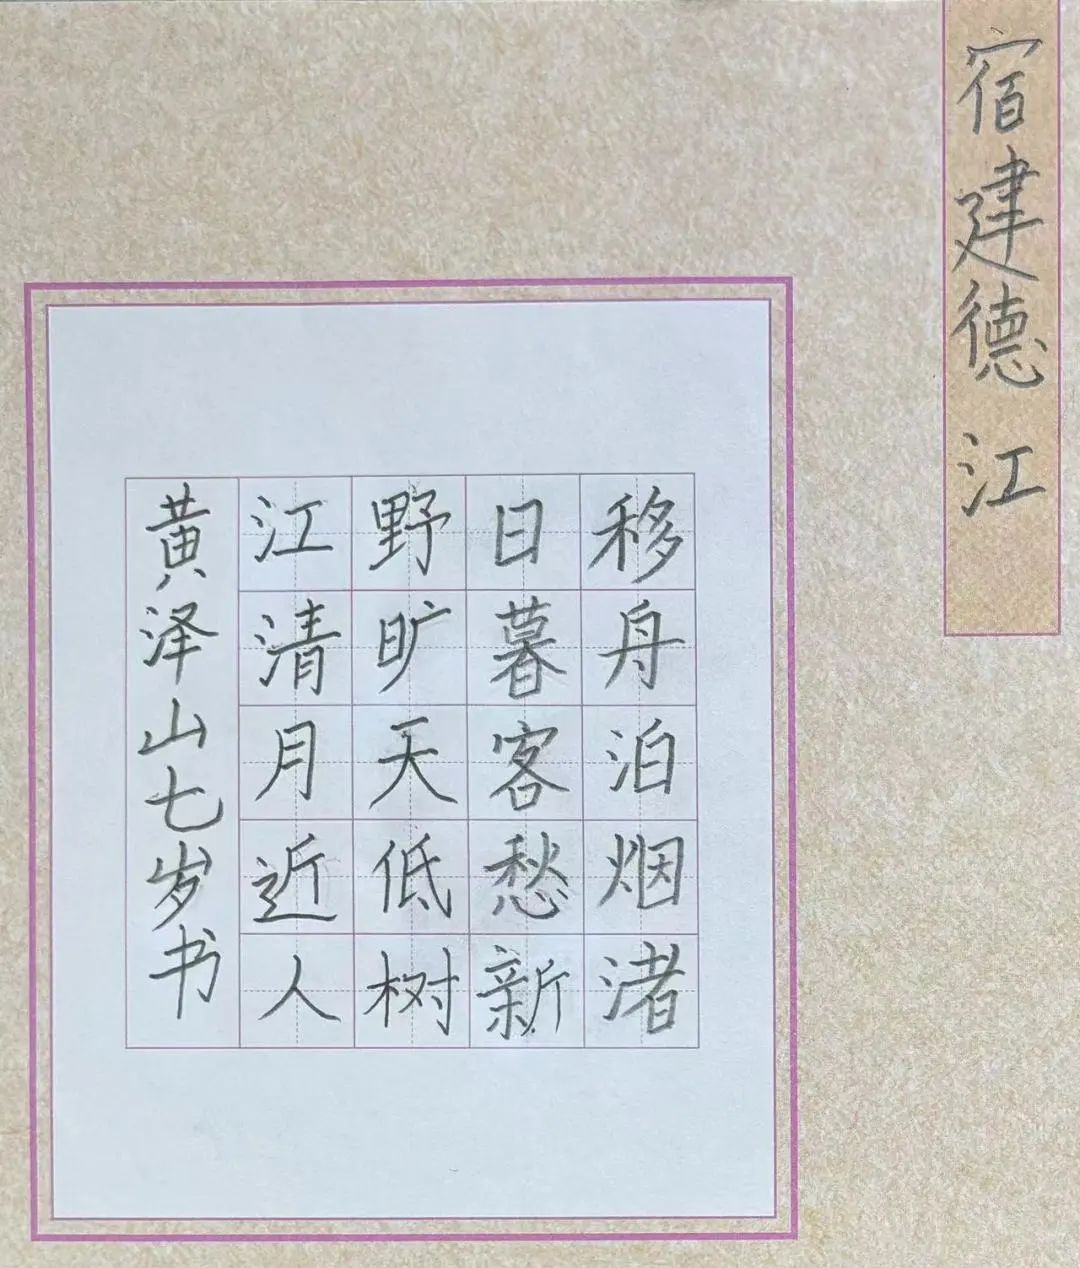 宿建德江
移舟泊烟渚
日暮客愁新
野旷天低树
江清月近人
黄泽山七岁书